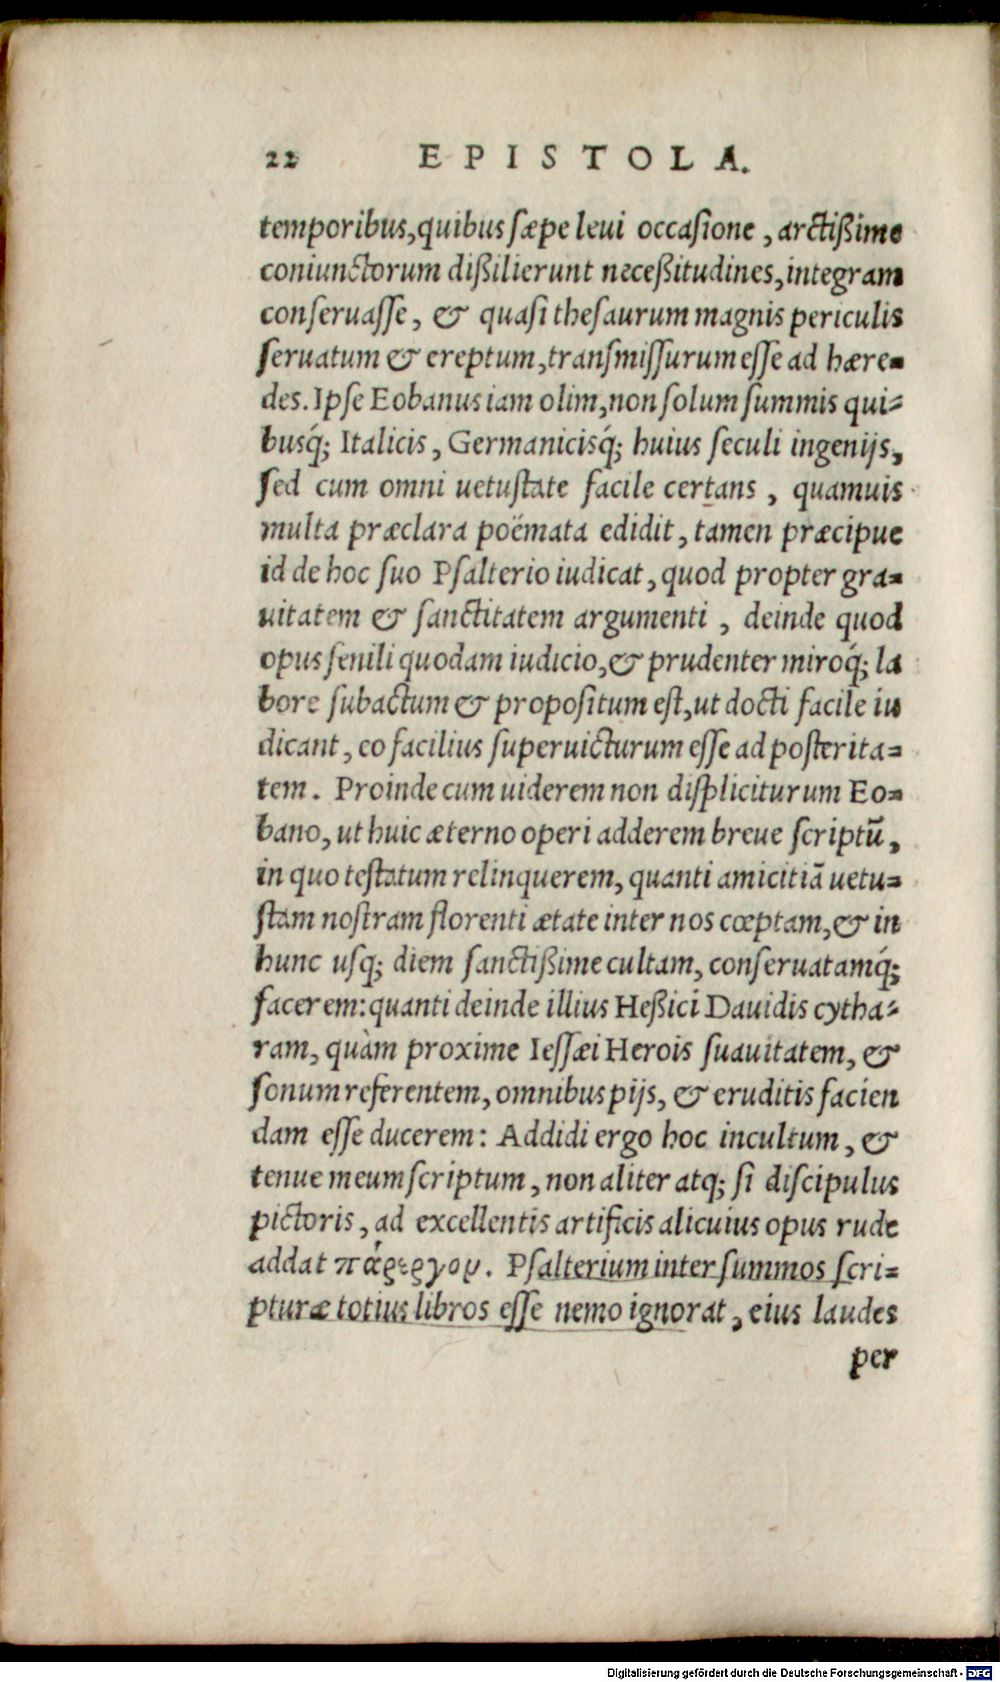 22 EPISTOLA.
temporibus, quibus sæpe leui occasione, arctißime
coniunctorum dißilierunt neceßitudines, integram
conseruasse, & quasi thesaurum magnis periculis
seruatum & ereptum, transmissurum esse ad hære-
des. Ipse Eobanus iam olim, non solum summis qui-
busq́; Italicis, Germanicisq́; huius seculi ingenijs,
sed cum omni uetustate facile certans, quamuis
multa præclara poëmata edidit, tamen præcipue
id de hoc suo Psalterio iudicat, quod propter gra-
uitatem & sanctitatem argumenti, deinde quod
opus senili quodam iudicio, & prudenter miroq́; la
bore subactum & propositum est, ut docti facile iu
dicant, eo facilius superuicturum esse ad posterita-
tem. Proinde cum uiderem non displiciturum Eo-
bano, ut huic æterno operi adderem breue scriptū,
in quo testatum relinquerem, quanti amicitiā uetu-
stam nostram florenti ætate inter nos cœptam, & in
hunc usq; diem sanctißime cultam, conseruatamq́;
facerem: quanti deinde illius Heßici Dauidis cytha-
ram, quàm proxime Iessæi Herois suauitatem, &
sonum referentem, omnibus pijs, & eruditis facien
dam esse ducerem: Addidi ergo hoc incultum, &
tenue meum scriptum, non aliter atq; si discipulus
pictoris, ad excellentis artificis alicuius opus rude
addat πάρεργον. Psalterium inter summos scri-
pturæ totius libros esse nemo ignorat, eius laudes
per
Digitalisierung gefördert durch die Deutsche Forschungsgemeinschaft - DFG